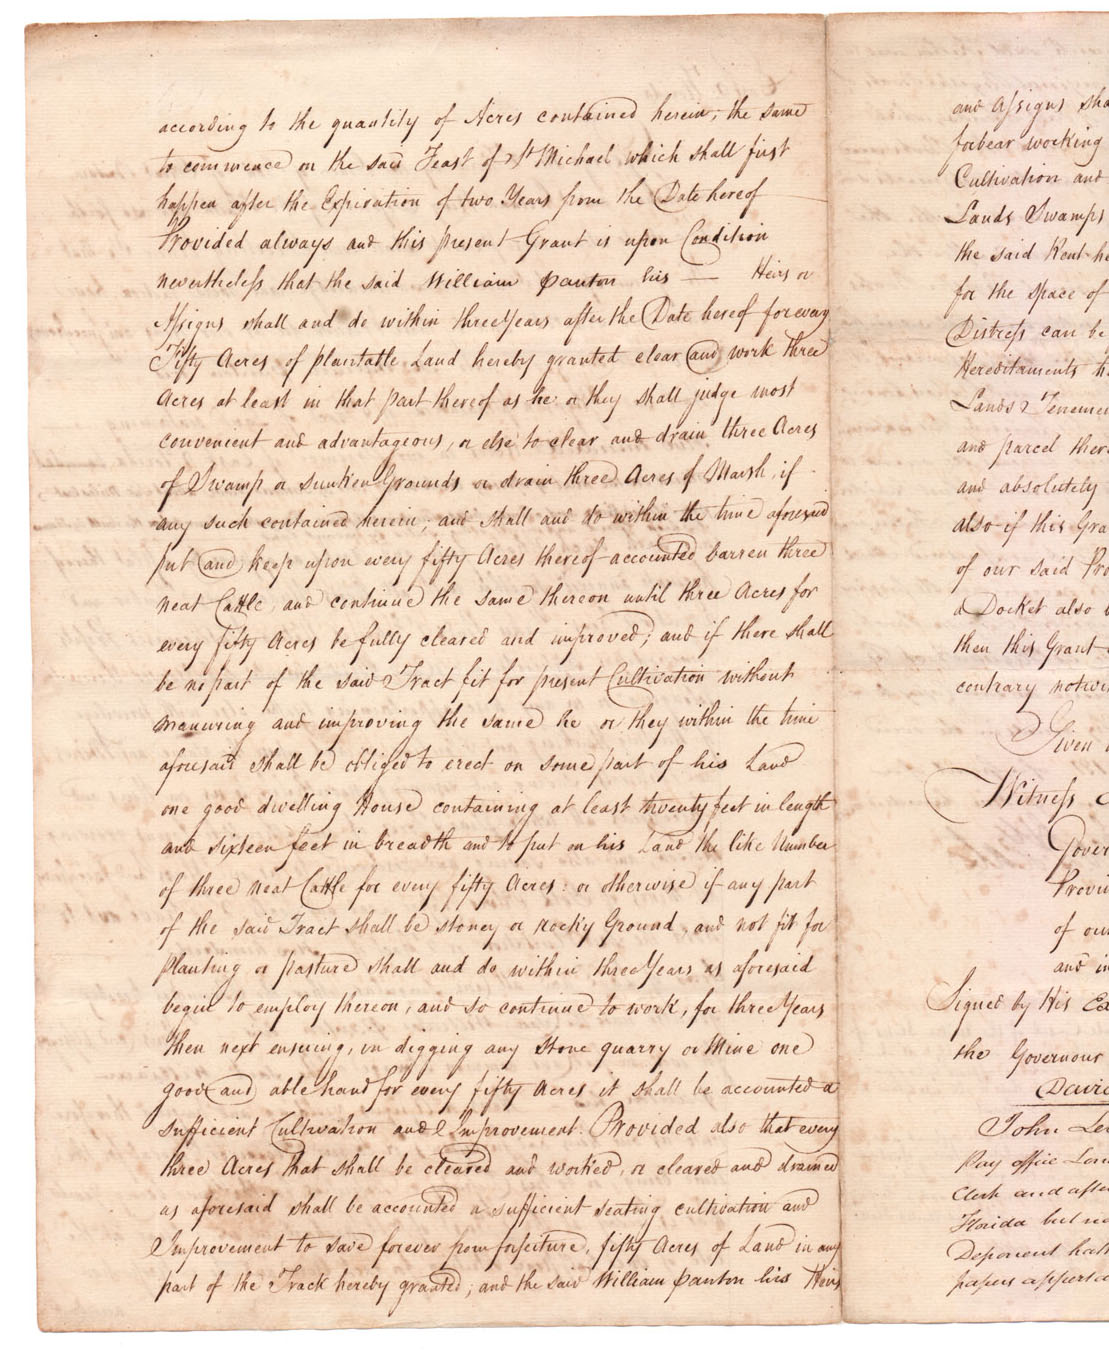 according to the quantity of Acres contained herein; the same
to commence on the said Feast of St Michael which shall first
happen after the Expiration of two Years from the Date hereof
Provided always and this present Grant is upon Condition
nevertheless that the said William Panton his — Heirs or
Assigns shall and do within three Years after the Date hereof for every
Fifty Acres of plantable Land hereby granted clear and work three
Acres at least in that part thereof as he or they shall judge most
convenient and advantageous, or else to clear and drain three Acres
of Swamp or Sunken Grounds or drain three Acres of Marsh, if
any such contained herein; and shall and do within the time aforesaid
put and keep upon every fifty Acres thereof accounted barren three
neat Cattle, and continue the same thereon until three Acres for
every fifty Acres be fully cleared and improved; and if there shall
be no part of the said Tract fit for present Cultivation without
manuring and improving the same he or they within the time
aforesaid shall be obliged to erect on some part of his Land
one good dwelling House containing at least twenty feet in length
and sixteen feet in breadth and to put on his Land the like Number
of three neat Cattle for every fifty Acres: or otherwise if any part
of the said Tract shall be stoney or rocky Ground, and not fit for
planting or pasture shall and do within three Years as aforesaid
begin to employ thereon, and so continue to work, for three Years
then next ensuing, in digging any Stone quarry or Mine one
good and able hand for every fifty Acres it shall be accounted a
sufficient Cultivation and Improvement. Provided also that every
three Acres that shall be cleared and worked, or cleared and drained
as aforesaid shall be accounted a sufficient seating cultivation and
Improvement to save forever from forfeiture, fifty Acres of Land in any
part of the Track hereby granted; and the said William Panton his Heirs
and Assigns sha
forbear working
Cultivation and
Lands Swamps
the said Rent he
for the space of
Distress can be
Hereditaments h
Lands & Teneme
and parcel there
and absolutely
also if this Gra
of our said Pro
a Docket also
then this Grant
contrary notwi
Given
Witness
Gover
Provi
of our
and in
Signed by His Ex
the Governour
David
John Le
Pay office Lon
Clerk and after
Florida but no
Deponent hath
papers apperta